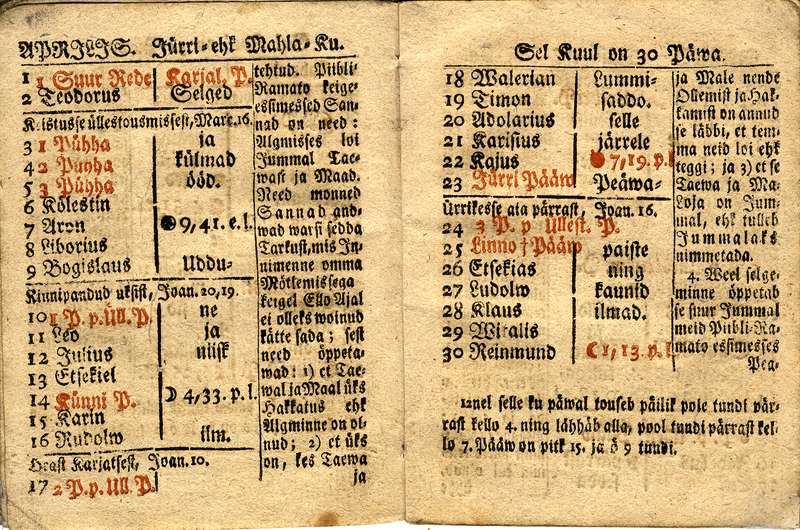 APRILIS. Jürri- ehk Mahla-Ku.
1 1 Suur Rede Karjal. P.
2 Teodorus Selged
Kristusse üllestousmissest, Mark. 16.
3 1 Pühha ja
4 2 Puhha külmad
5 3 Pühha ööd.
6 Kölestin
7 Aron 9, 41. e. l.
8 Liborius
9 Bogislaus Uddu-
Kinnipandud uksist, Joan. 20, 19.
10 1 P. p. Üll. P. ne
11 Leo ja
12 Julius niisk
13 Etsekiel
14 Künni P. ☽ 4, 33. p. l.
15 Karin
16 Rudolw ilm.
Heast Karjatsest, Joan. 10.
17 2 P. p. Üll. P.
tehtud. Piibli-
Ramato keige-
essimessed San-
nad on need:
Algmisses loi
Jummal Tae-
wast ja Maad.
Need monned
Sannad and-
wad warsi sedda
Tarkust, mis In-
nimenne omma
Mötlemissega
keigel Ello Ajal
ei olleks woinud
kätte sada; sest
need öppeta-
wad: 1) et Tae-
wal ja Maal üks
Hakkatus ehk
Algminne on ol-
nud; 2) et üks
on, kes Taewa
ja
Sel Kuul on 30 Päwa.
18 Walerian Lummi-
19 Timon saddo.
20 Adolarius selle
21 Karisius järrele
22 Kajus 7, 19. p. l.
23 Jürri Pääw Peäwa-
Ürrikesse aja pärrast, Joan. 16.
24 3 P. p Üllest. P.
25 Linno † Pääw paiste
26 Etsekias ning
27 Ludolw kaunid
28 Klaus ilmad.
29 Witalis
30 Reinmund ☾ 1, 13. p. l.
ja Male nende
Ollemist ja Hak-
kamist on annud
se läbbi, et tem-
ma neid loi ehk
teggi; ja 3) et se
Taewa ja Ma-
Loja on Jum-
mal, ehk tulleb
Jummalaks
nimmetada.
4. Weel selge-
minne öppetab
se suur Jummal
meid Piibli-Ra-
mato essimesses
Pea-
12nel selle ku päwal touseb päilik pole tundi pär-
rast kello 4. ning lähhäb alla, pool tundi pärrast kel-
lo 7. Pääw on pitk 15. ja ö 9 tundi.